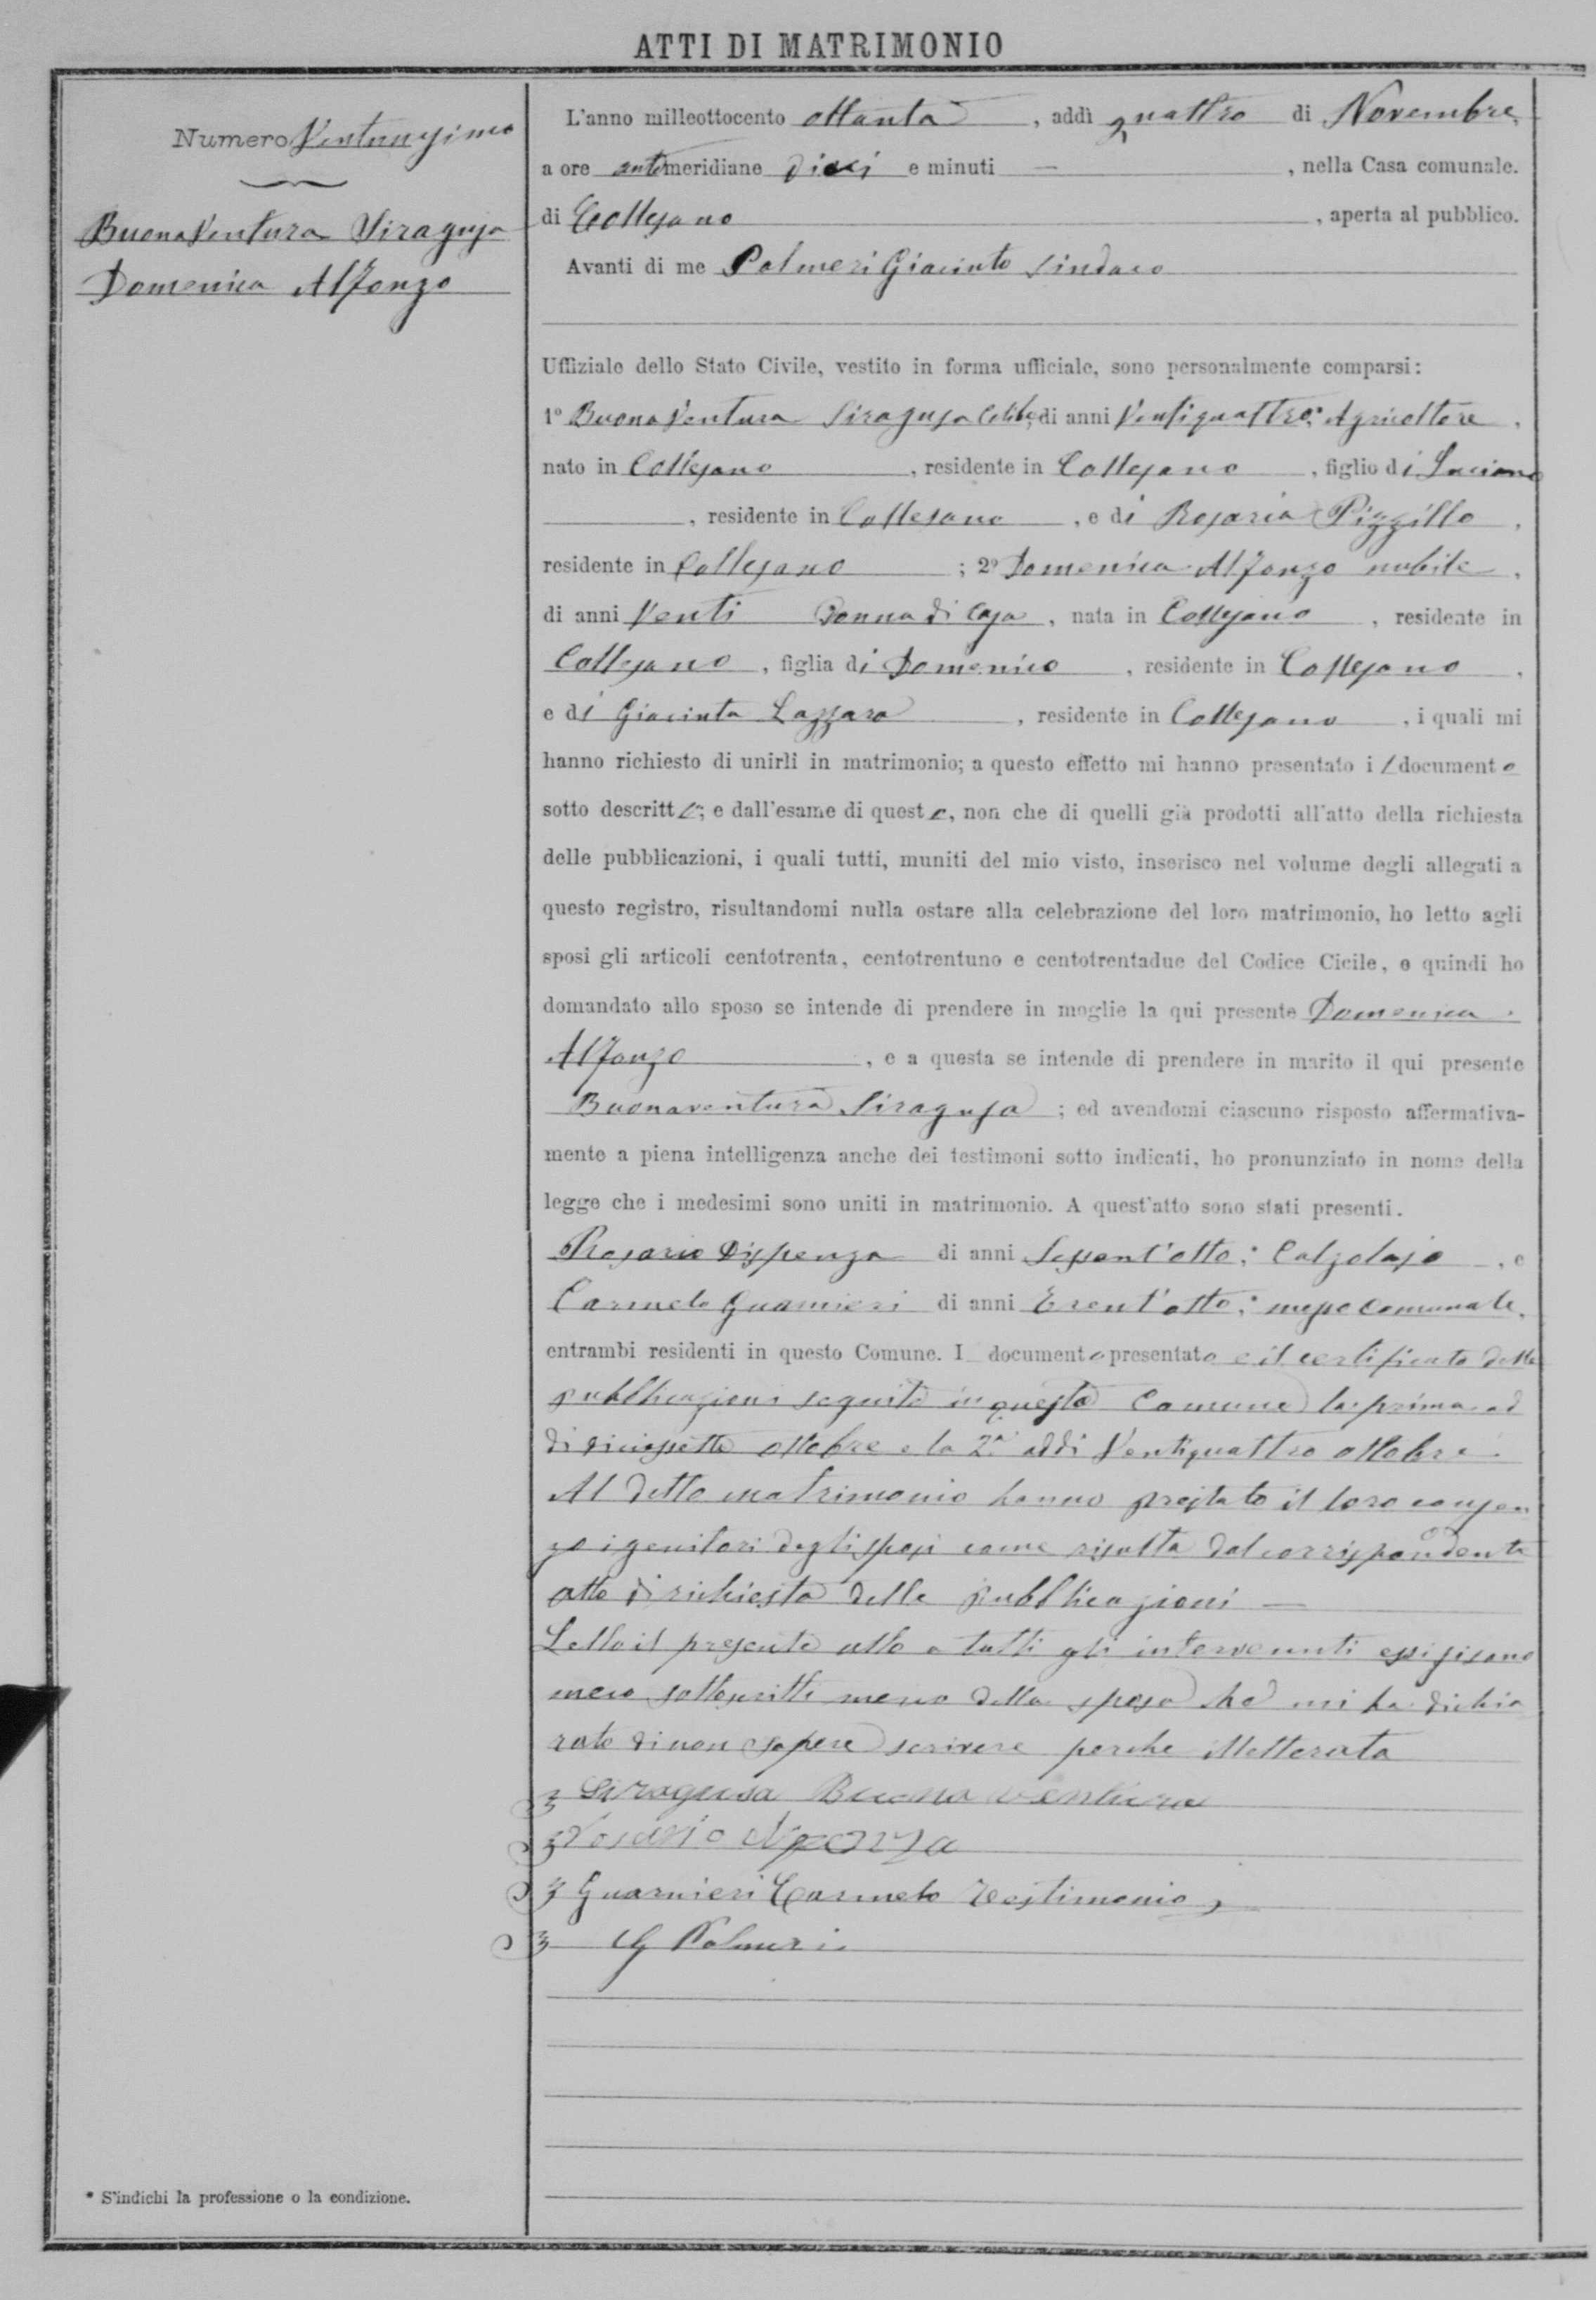 ATTI DI MATRIMONIO
Numero Ventunesimo
Buonaventura Siragusa
Domenica Alfonzo
L'anno milleottocento ottanta, addì quattro di Novembre,
a ore antimeridiane dieci e minuti —, nella Casa comunale.
di Collesano, aperta al pubblico.
Avanti di me Palmeri Giacinto Sindaco
Uffiziale dello Stato Civile, vestito in forma ufficiale, sono personalmente comparsi:
1º Buonaventura Siragusa Celibe, di anni Ventiquattro: Agricoltore,
nato in Collesano, residente in Collesano, figlio di Luciano
, residente in Collesano, e di Rosaria Pizzillo,
residente in Collesano; 2º Domenica Alfonzo nubile,
di anni Venti Donna di Casa, nata in Collesano, residente in
Collesano, figlia di Domenico, residente in Collesano,
e di Giacinta Lazzara, residente in Collesano, i quali mi
hanno richiesto di unirli in matrimonio; a questo effetto mi hanno presentato il documento
sotto descritto; e dall'esame di questo, non che di quelli già prodotti all'atto della richiesta
delle pubblicazioni, i quali tutti, muniti del mio visto, inserisco nel volume degli allegati a
questo registro, risultandomi nulla ostare alla celebrazione del loro matrimonio, ho letto agli
sposi gli articoli centotrenta, centotrentuno e centotrentadue del Codice Cicile, e quindi ho
domandato allo sposo se intende di prendere in moglie la qui presente Domenica
Alfonzo, e a questa se intende di prendere in marito il qui presente
Buonaventura Siragusa; ed avendomi ciascuno risposto affermativa-
mente a piena intelligenza anche dei testimoni sotto indicati, ho pronunziato in nome della
legge che i medesimi sono uniti in matrimonio. A quest'atto sono stati presenti.
Rosario Dispenza di anni Sessant'otto: Calzolajo, e
Carmelo Guarnieri di anni Trent'otto: messo Comunale,
entrambi residenti in questo Comune. I documento presentato e il certificato delle
pubblicazioni seguite in questo Comune la prima ad
di diciassette ottobre e la 2ª addi Ventiquattro ottobre.
Al detto matrimonio hanno prestato il loro consen
zo i genitori degli sposi come risulta dal corrispondente
atto di richiesta delle pubblicazioni —
Letto il presente atto a tutti gli intervenuti essi si sono
meco sottoscritti meno della sposa che mi ha dichia
rato di non sapere scrivere perche illetterata
Siragusa Buonaventura
Rosario Dispenza
Guarnieri Carmelo Testimonio
G Palmeri
* S'indichi la professione o la condizione.